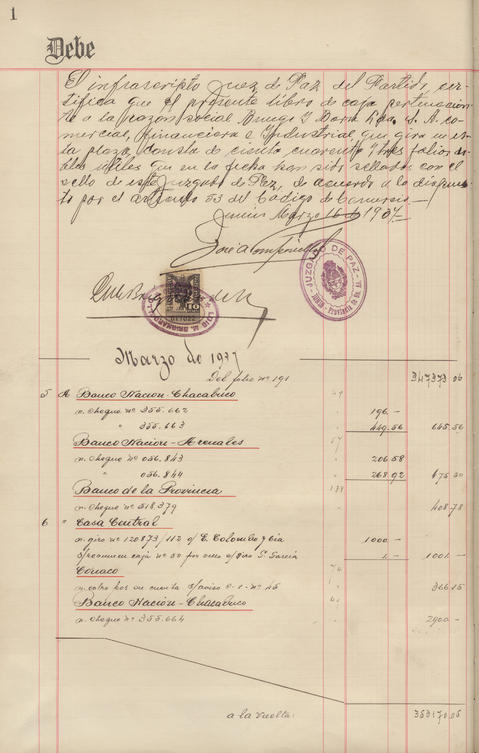 1
Debe
El infrascripto Juez de Paz del Partido, cer-
tifica que el presente libro de caja pertenecien-
te a la razon social y S. A. co-
mercial, financiera e Industrial que gira en es-
ta plaza, consta de ciento cuarenta y tres folios do-
bles utiles que en la fecha han sido sellados con el
sello de este Juzgado de Paz, de acuerdo a lo dispues-
to por el articulo 53 del Codigo de Comercio.—
Junin Marzo 16 de 1937.—
JUZGADO DE PAZ
Marzo de 1937
Del folio nº 191 347373 06
5 A Banco Nacion-Chacabuco
n. cheque nº 355.662 196.—
" 355.663 449.56 645.56
Banco Nación-Arenales 57
n. cheque nº 056.843 206.58
" 056.844 268.92 475.50
Banco de la Provincia 138
n. cheque nº 518.379 408.78
6 " Casa Central
n. giro nº 120873/112 o/ E. Colombo y Cia 1000.—
s/resumen caja nº 50 por s/giro S. García 1.— 1001.—
n. cobro hos en cuenta s/aviso nº 45 366 15
Banco Nación-Chacabuco
n. cheque nº 355.664 2900.—
a la vuelta: 353170 05